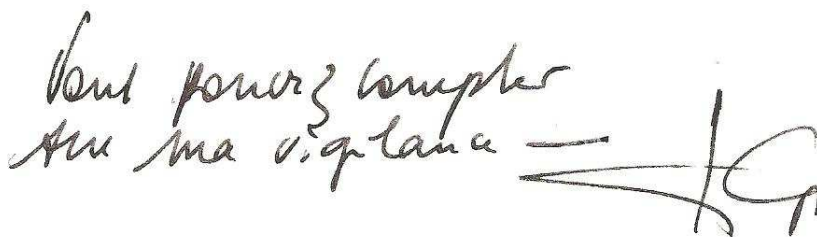 Vous pouvez compter
sur ma vigilance —